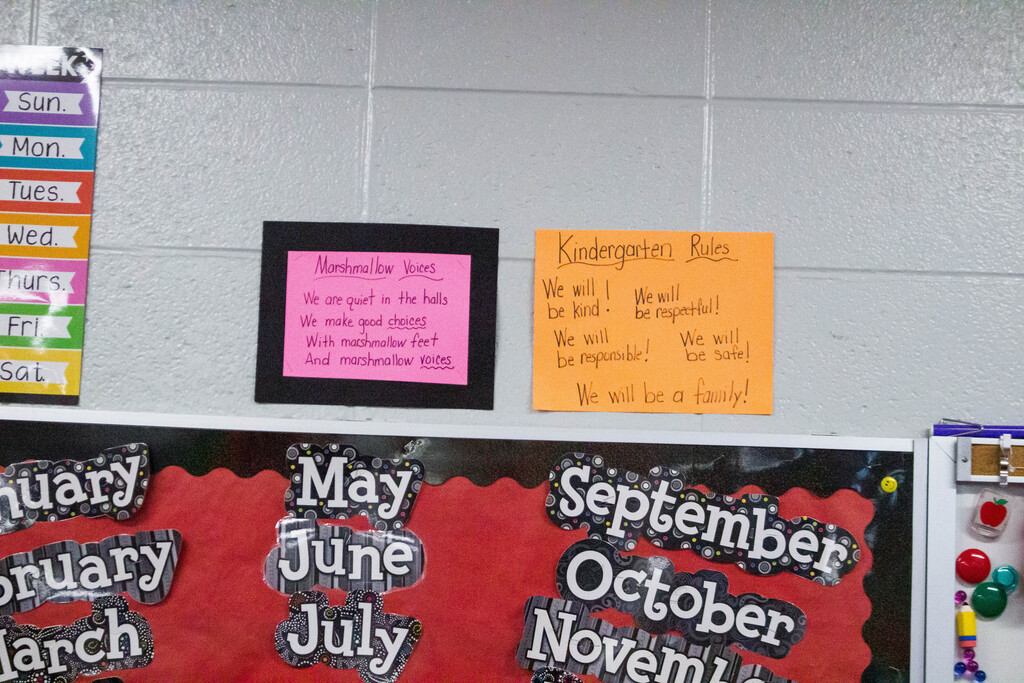 Sun.
Mon.
Tues.
Wed.
Thurs.
Fri.
Sat.
Marshmallow Voices
We are quiet in the halls
We make good choices
With marshmallow feet
And marshmallow voices
Kindergarten Rules
We will
be kind!
We will
be respectful!
We will
be responsible!
We will
be safe!
We will be a family!
March
May
June
July
September
October